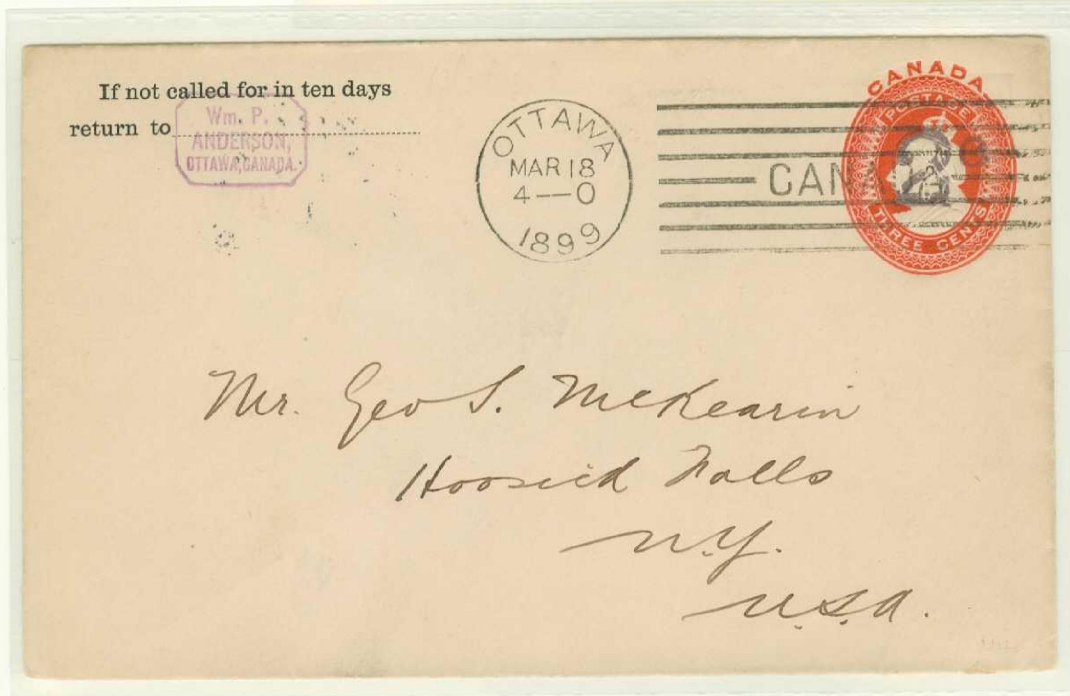 If not called for in ten days
return to
Wm. P.
ANDERSON,
OTTAWA, CANADA.
OTTAWA
MAR 18
4—0
1899
CANADA
POSTAGE
THREE CENTS
Mr. Geo S. McKearin
Hoosick Falls
N.Y.
U.S.A.